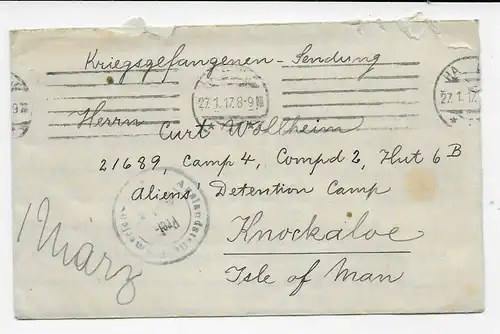 Kriegsgefangenen - Sendung
27.1.17.8-9
HA
27.1.17.
9
Herrn
Curt Wohlheim
21689, Camp 4, Compd 2, Hut 6B
Aliens' Detention Camp
Knockaloe
Isle of Man
März